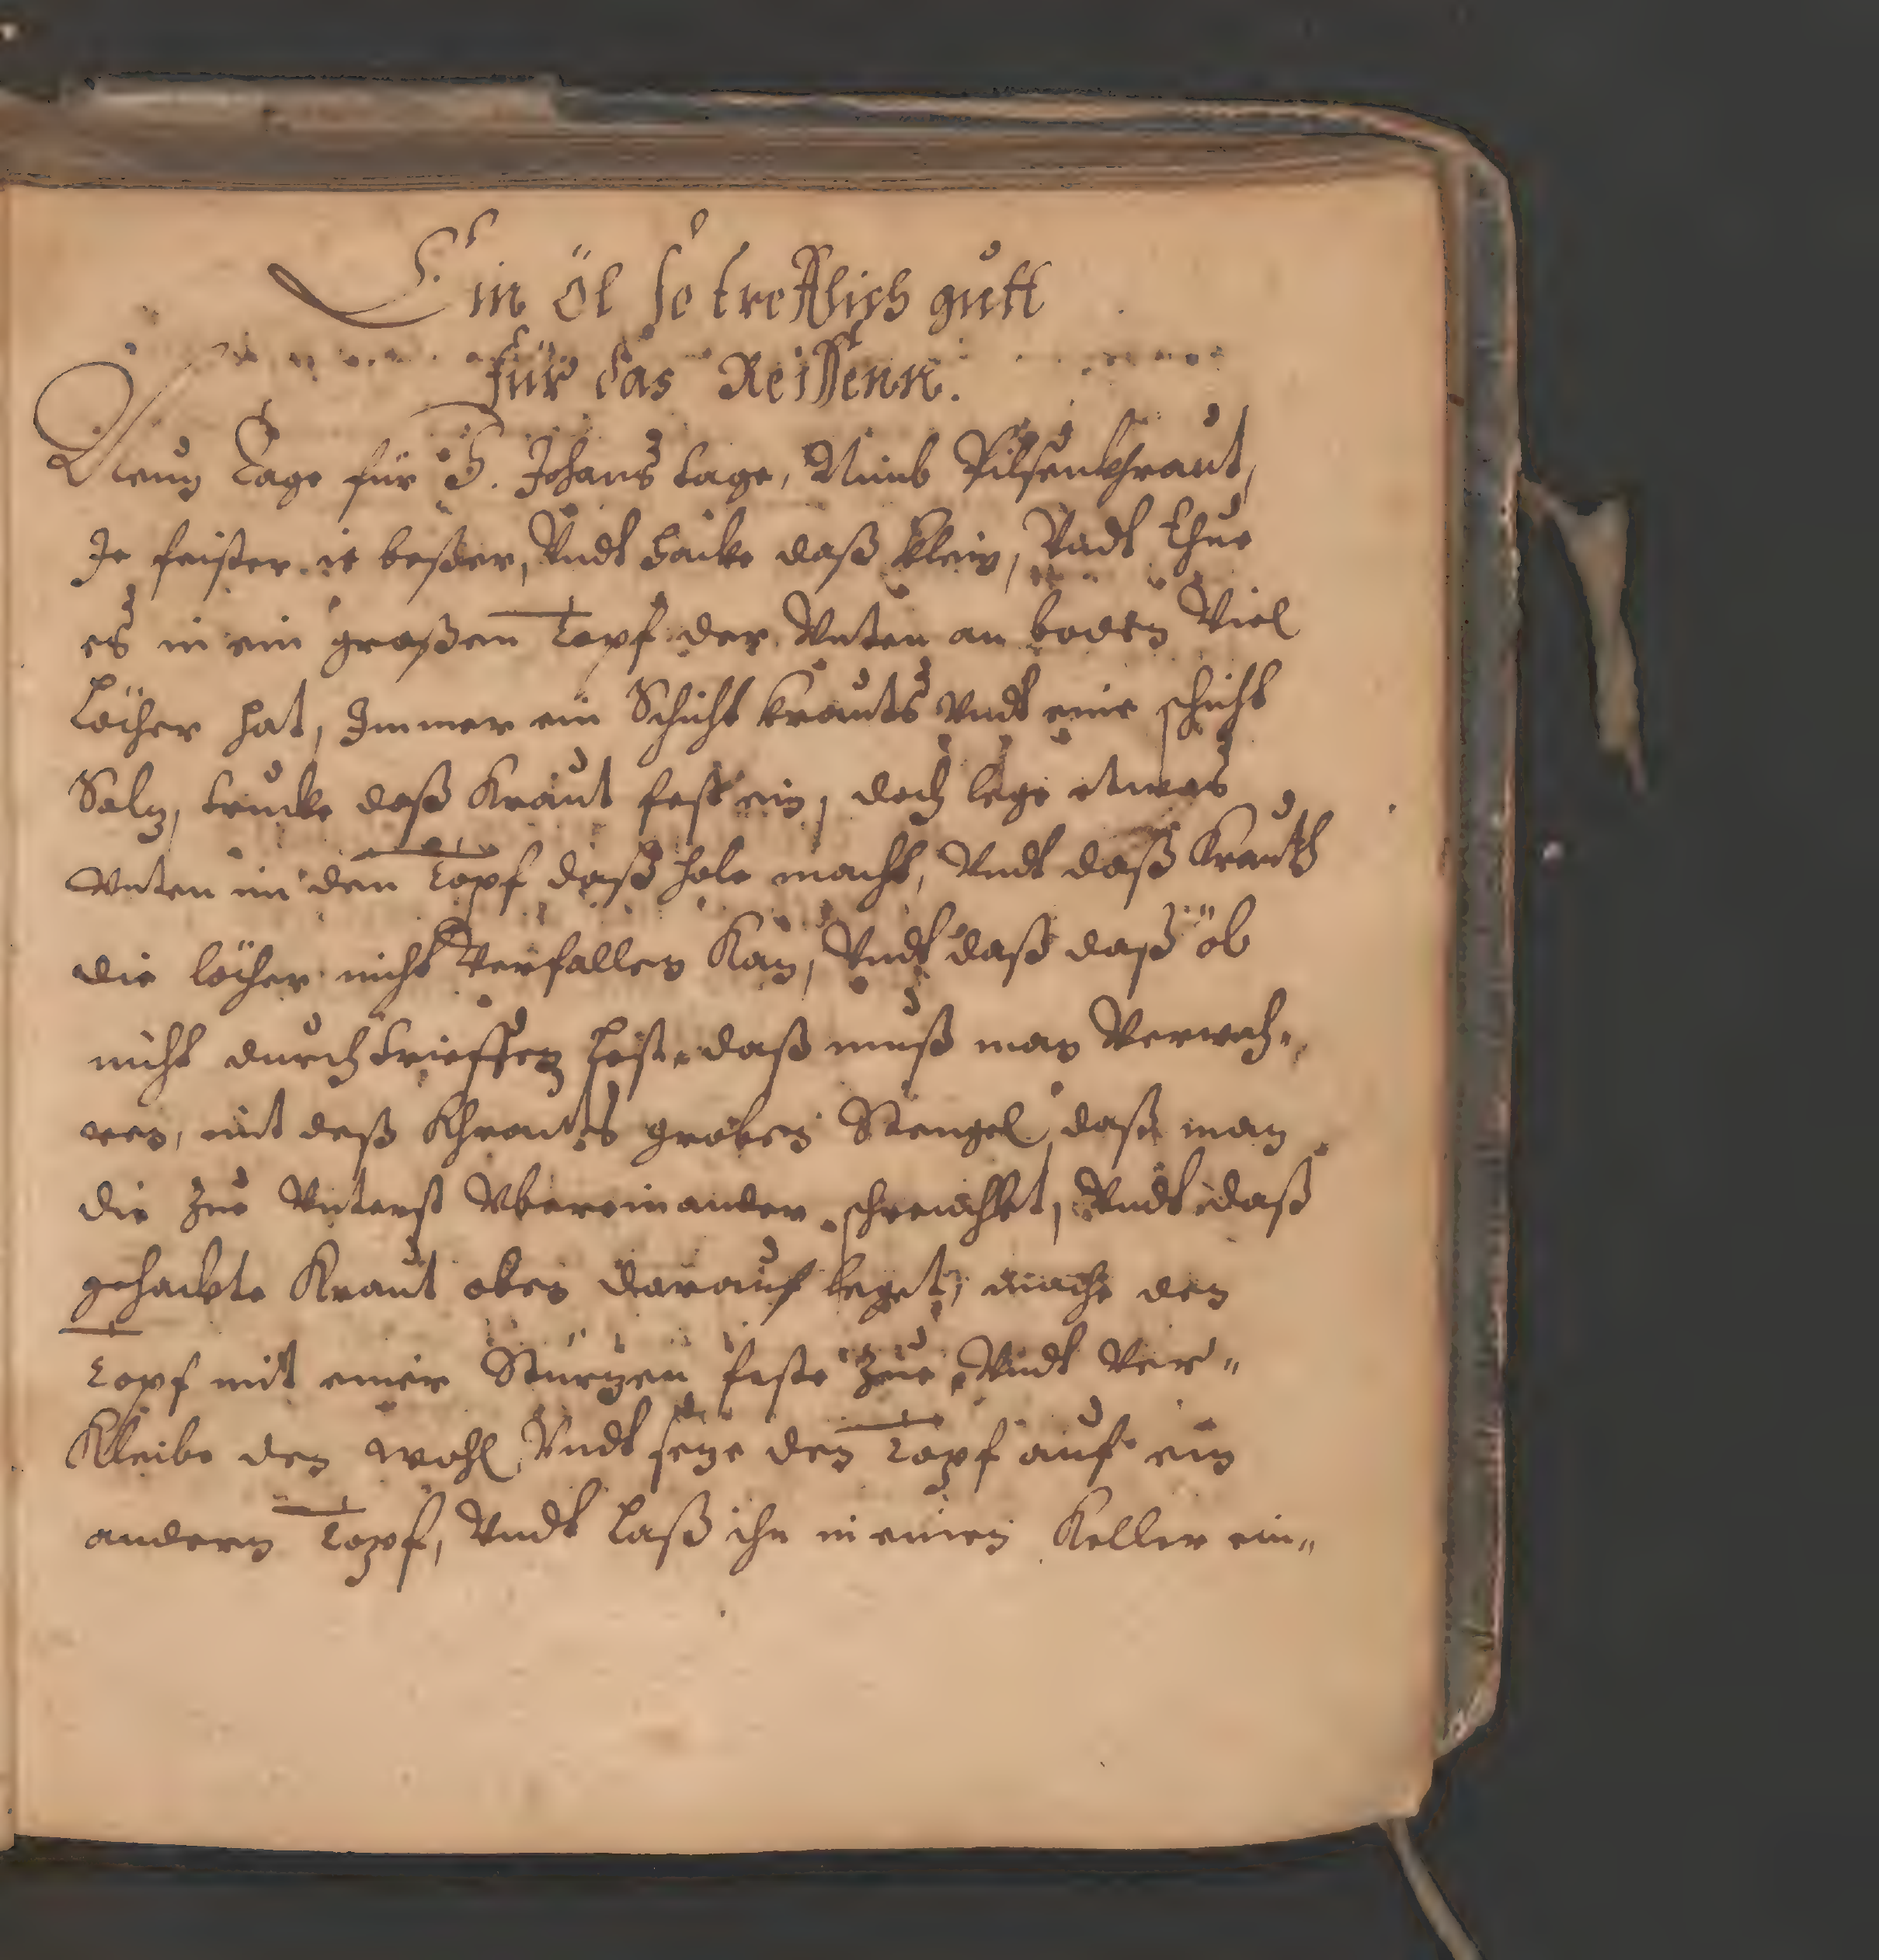 Ein öl so trefflich gutt
für das Reissenn.
Neun Tage für S. Johans tage, Nimb Pilsenkhraut,
Je feister ie besser, Vndt hacke daß klein, Vndt thue
es in ein großen Topf der Vnten an boden Viel
Löcher hat, Immer ein Schicht krauts Vndt eine schicht
Salz, trucke daß Kraut fest ein, doch lege etwas
Vnten in den Topf daß hole macht, Vndt daß Krautt
die löcher nicht Verfallen Kan, Vndt daß daß öl
nicht durch trieffen  daß muß man Verwah-
ren, mit deß Khrauts groben Stengel, daß man
die zue Vnterst Vbereinander  Vndt daß
gehackte Kraut oben darauf leget, mache den
Topf mit einer Stürzen feste zue, Vndt Ver-
Kleibe den wohl, Vndt seze den Topf auf ein
andern Topf, Vndt Laß ihn in einen Keller ein-